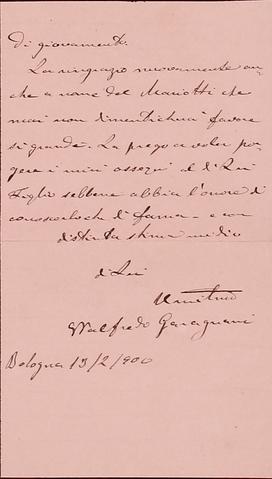 di giovamento.
La ringrazio nuovamente an-
che a nome del Mariotti che
mai non dimenticherà favore
sì grande. La prego a voler por-
gere i miei ossequi al di Lei
Figlio sebbene abbia l'onore di
conoscerlo che di fama - e con
distinta stima mi dico
di Lei
Umilmo
Walfredo Garagnani
Bologna 13/2/900